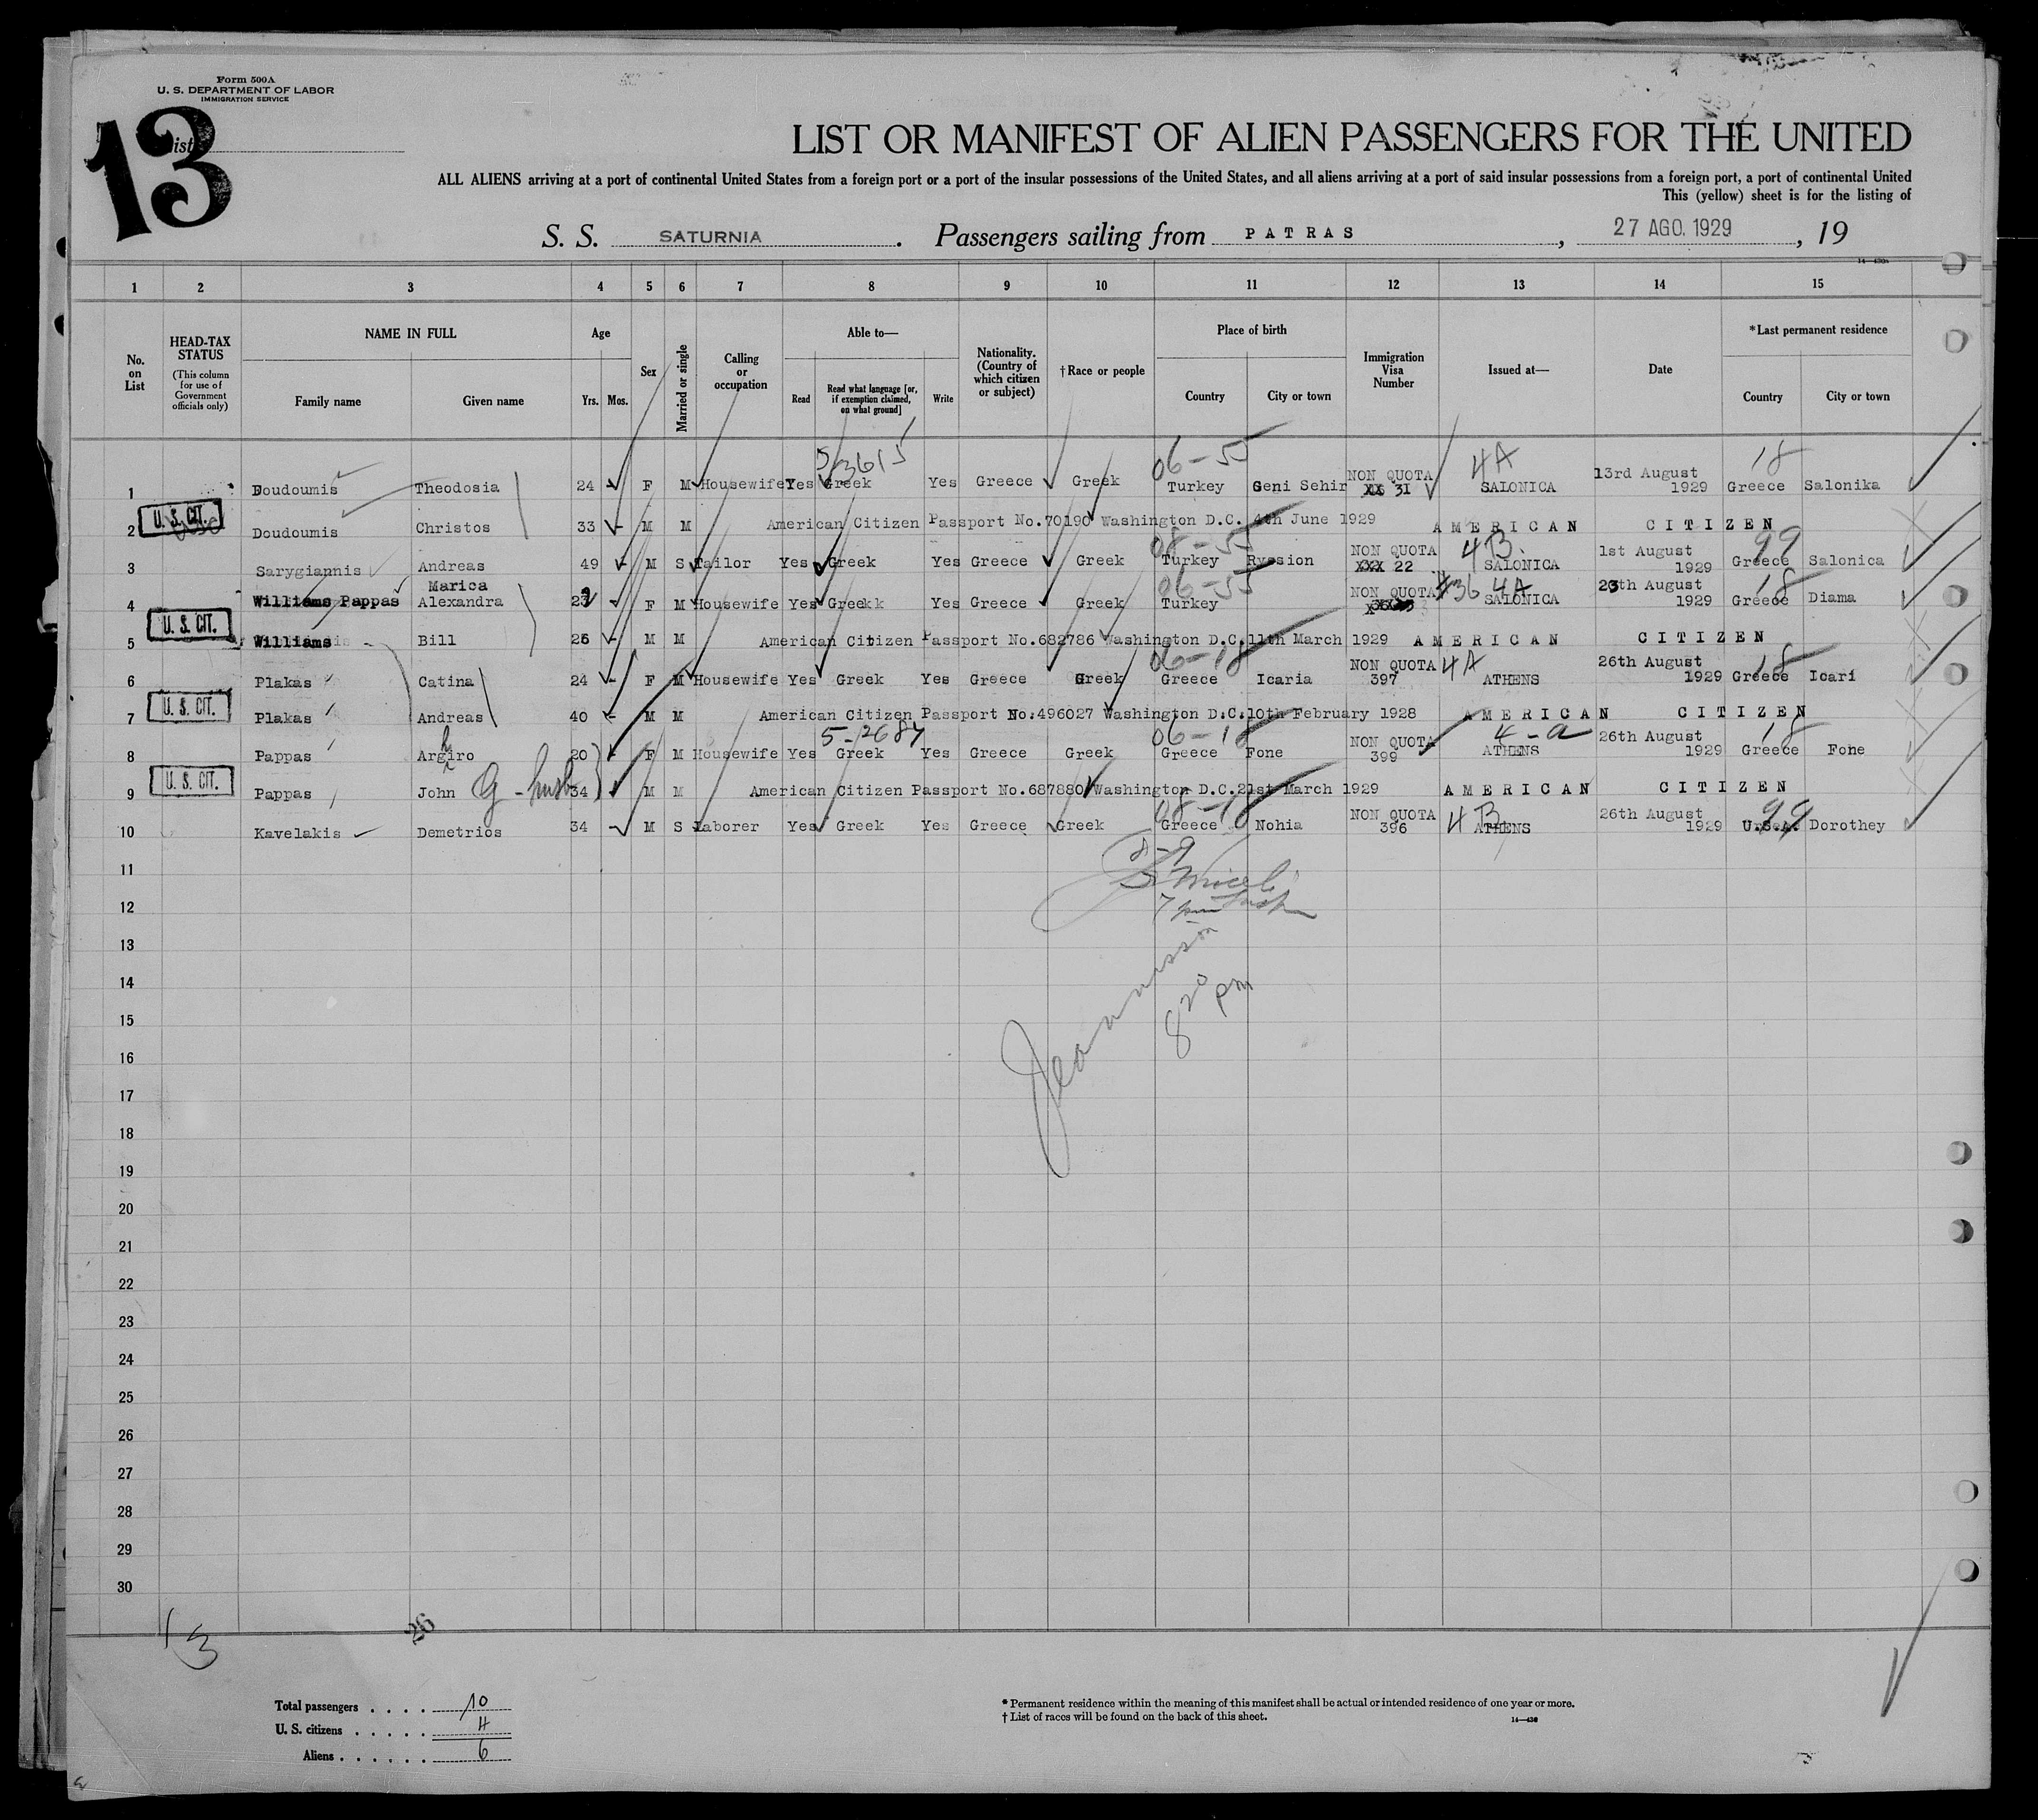 Form 500A
U. S. DEPARTMENT OF LABOR
IMMIGRATION SERVICE
13
List
LIST OR MANIFEST OF ALIEN PASSENGERS FOR THE UNITED
ALL ALIENS arriving at a port of continental United States from a foreign port or a port of the insular possessions of the United States, and all aliens arriving at a port of said insular possessions from a foreign port, a port of continental United
This (yellow) sheet is for the listing of
S. S. SATURNIA. Passengers sailing from PATRAS, 27 AGO. 1929, 19
1 2 3 4 5 6 7 8 9 10 11 12 13 14 15
No. on List
HEAD-TAX STATUS (This column for use of Government officials only)
NAME IN FULL Family name Given name
Age Yrs. Mos.
Sex
Married or single
Calling or occupation
Able to— Read Read what language [or, if exemption claimed, on what ground] Write
Nationality. (Country of which citizen or subject)
†Race or people
Place of birth Country City or town
Immigration Visa Number
Issued at—
Date
*Last permanent residence Country City or town
5/3615 06-55 4A 18
1 Doudoumis Theodosia 24 F M Housewife Yes Greek Yes Greece Greek Turkey Geni Sehir NON QUOTA 31 SALONICA 13rd August 1929 Greece Salonika
U. S. CIT.
2 Doudoumis Christos 33 M M American Citizen Passport No.70190 Washington D.C. 4th June 1929 AMERICAN CITIZEN
08-55 4B 99
3 Sarygiannis Andreas 49 M S Tailor Yes Greek Yes Greece Greek Turkey Rysion NON QUOTA XXX 22 SALONICA 1st August 1929 Greece Salonica
06-55 #36 4A 18
4 Williams Pappas Marica Alexandra 22 F M Housewife Yes Greekk Yes Greece Greek Turkey NON QUOTA SALONICA 23th August 1929 Greece Diama
U. S. CIT.
5 Williams Bill 26 M M American Citizen Passport No.682786 Washington D.C. 11th March 1929 AMERICAN CITIZEN
06-18 4A 18
6 Plakas Catina 24 F M Housewife Yes Greek Yes Greece Greek Greece Icaria NON QUOTA 397 ATHENS 26th August 1929 Greece Icari
U. S. CIT.
7 Plakas Andreas 40 M M American Citizen Passport No.496027 Washington D.C. 10th February 1928 AMERICAN CITIZEN
5-2684 06-18 4-a 18
8 Pappas Argiro 20 F M Housewife Yes Greek Yes Greece Greek Greece Fone NON QUOTA 399 ATHENS 26th August 1929 Greece Fone
U. S. CIT.
9 Pappas John G-husb 34 M M American Citizen Passport No.687880 Washington D.C. 21st March 1929 AMERICAN CITIZEN
08-18 4B 99
10 Kavelakis Demetrios 34 M S Laborer Yes Greek Yes Greece Greek Greece Nohia NON QUOTA 396 ATHENS 26th August 1929 U.S.A. Dorothey
11
12
13
14
15
16
17
18
19
20
21
22
23
24
25
26
27
28
29
30
8 20 pm
13
26
Total passengers . . . . 10
U. S. citizens . . . . . 4
Aliens . . . . . . 6
* Permanent residence within the meaning of this manifest shall be actual or intended residence of one year or more.
† List of races will be found on the back of this sheet.
14—430